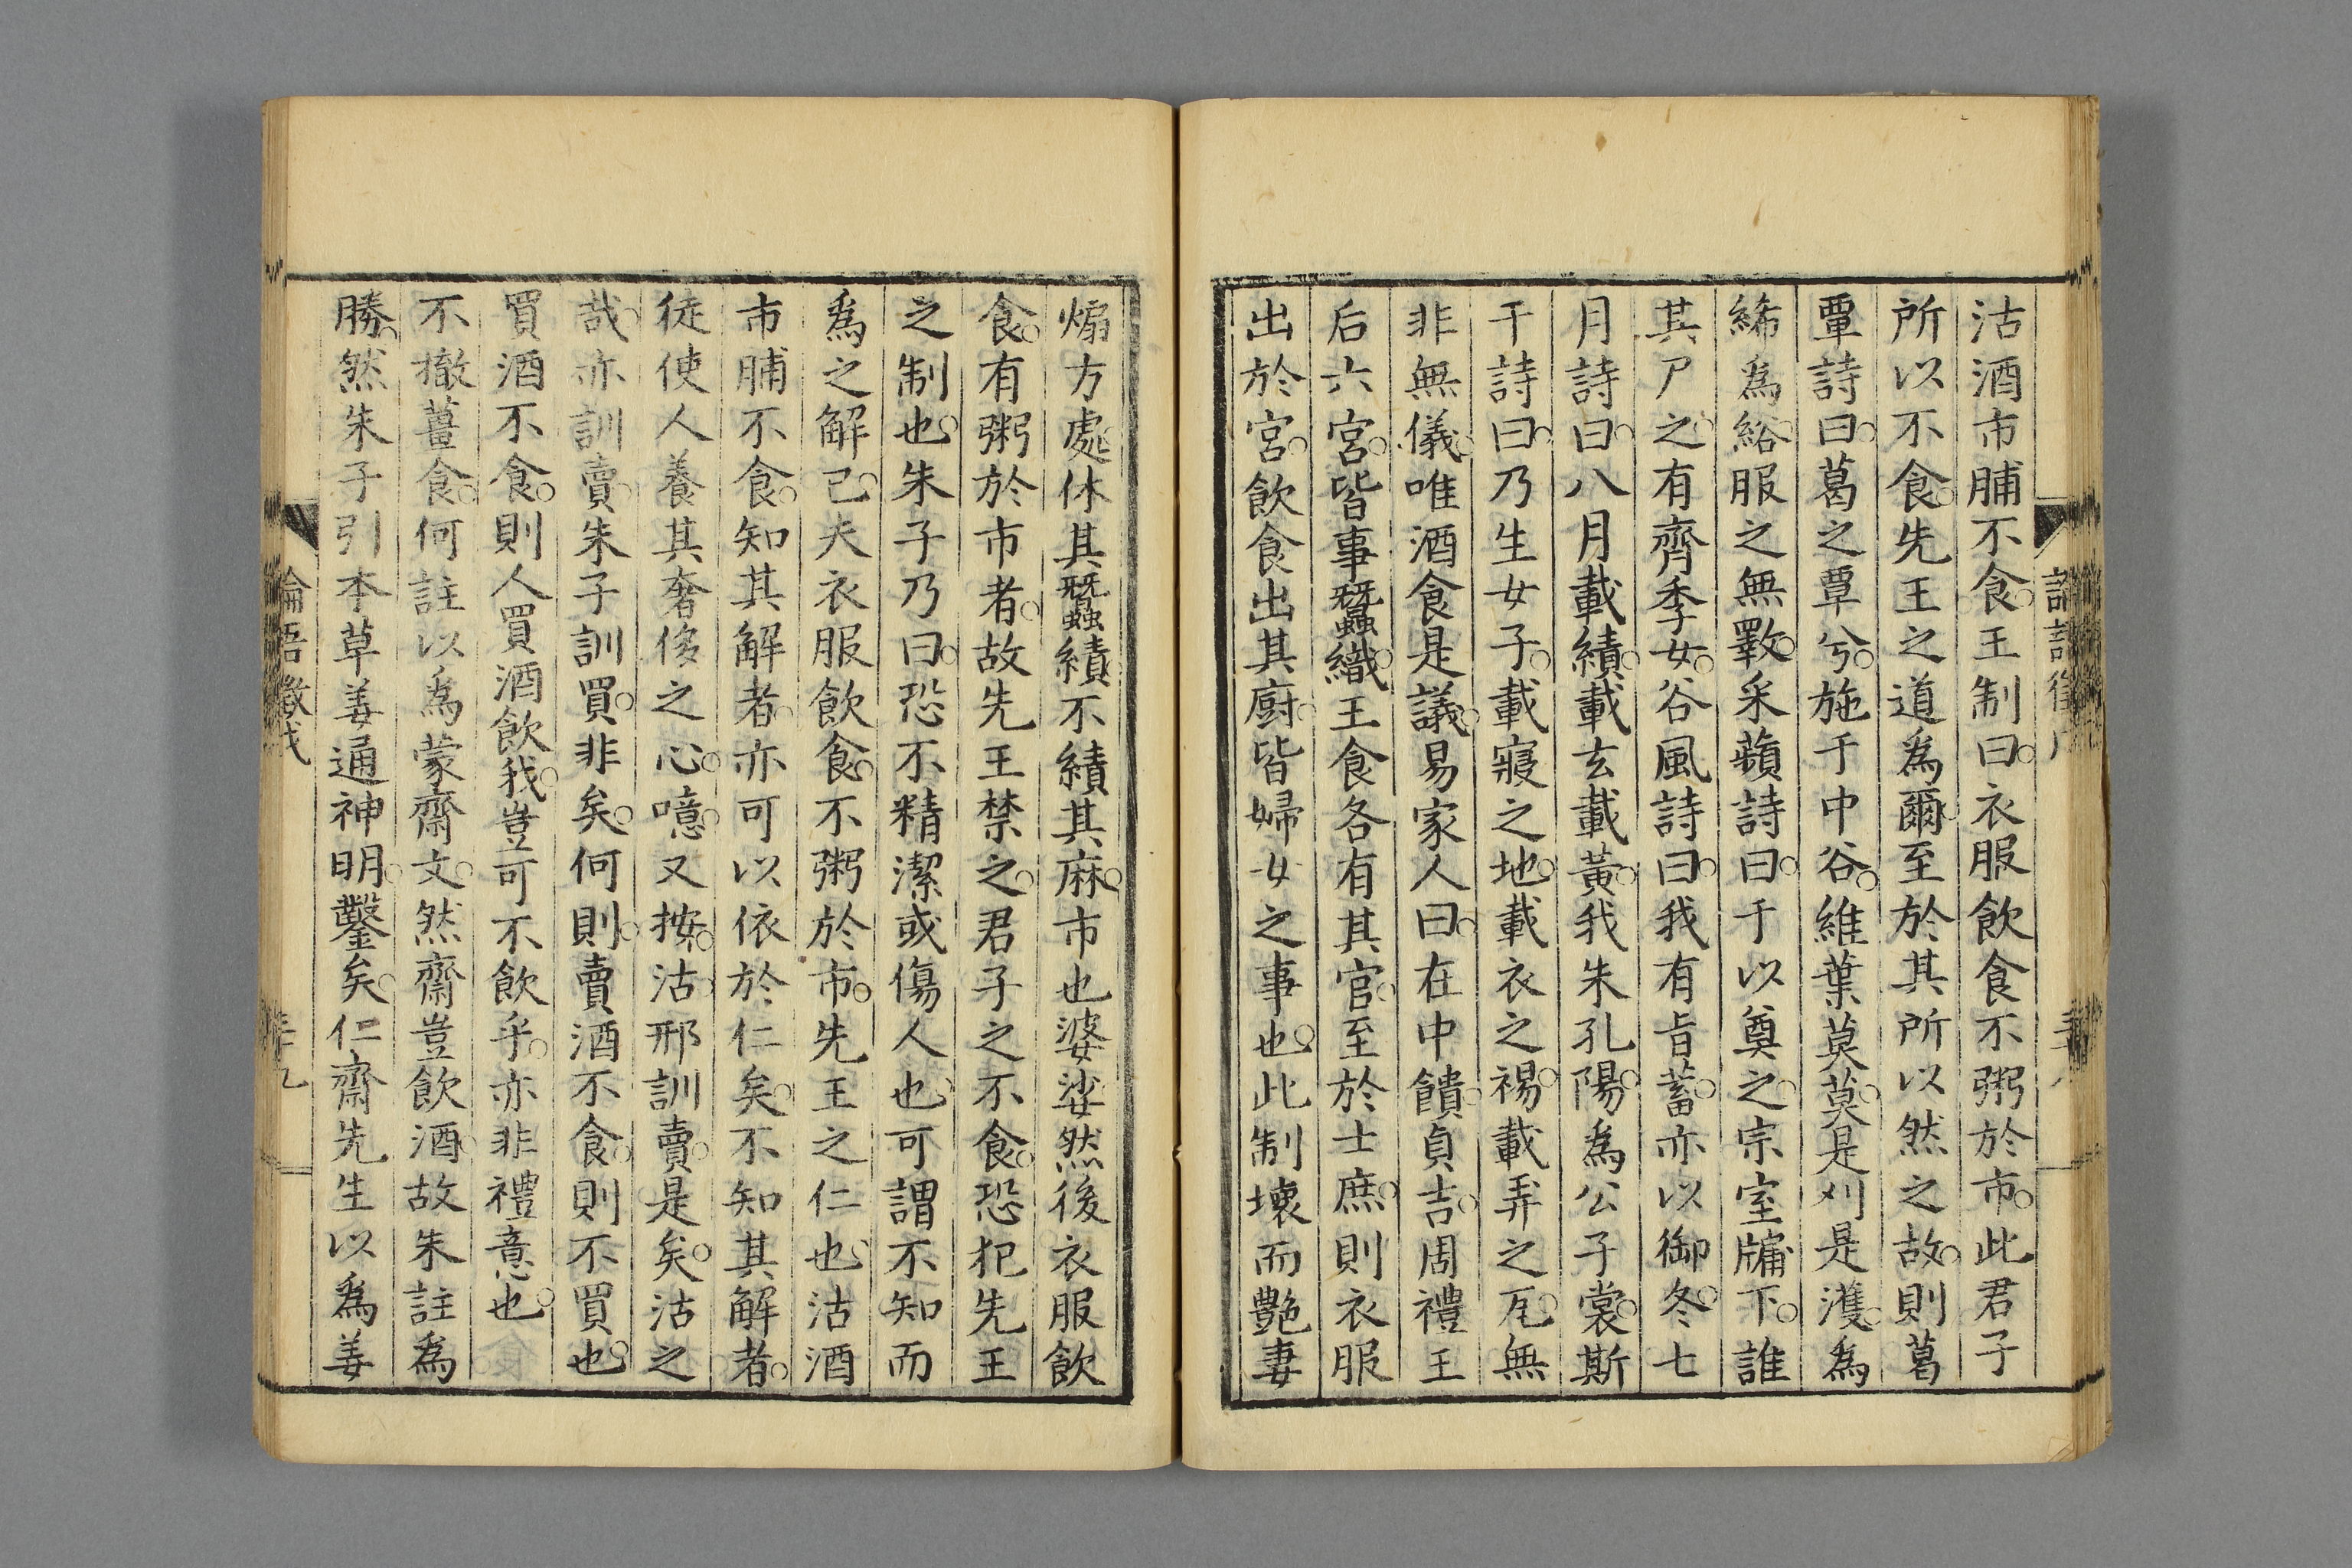 沽酒市脯不食。王制曰。衣服飲食不粥於市。此君子
所以不食。先王之道爲爾。至於其所以然之故。則葛
覃詩曰。葛之覃兮。施于中谷。維葉莫莫。是刈是濩。爲
絺爲綌。服之無斁。采蘋詩曰。于以奠之。宗室牖下。誰
其尸之。有齊季女。谷風詩曰。我有旨蓄。亦以御冬。七
月詩曰。八月載績。載玄載黃。我朱孔陽。爲公子裳。斯
干詩曰。乃生女子。載寢之地。載衣之裼。載弄之瓦。無
非無儀。唯酒食是議。易家人曰。在中饋。貞吉。周禮王
后六宮。皆事蠶織。王食各有其官。至於士庶。則衣服
出於宮。飲食出其廚。皆婦女之事也。此制壞而艷妻
煽方處。休其蠶績。不績其麻。市也婆娑。然後衣服飲
食。有粥於市者。故先王禁之。君子之不食。恐犯先王
之制也。朱子乃曰。恐不精潔或傷人也。可謂不知而
爲之解已。夫衣服飲食。不粥於市。先王之仁也。沽酒
市脯不食。知其解者。亦可以依於仁矣。不知其解者。
徒使人養其奢侈之心。噫。又按。沽。邢訓賣。是矣。沽之
哉。亦訓賣。朱子訓買。非矣。何則。賣酒不食。則不買也。
買酒不食。則人買酒飲我。豈可不飲乎。亦非禮意也。
不撤薑食。何註以爲蒙齋文。然齋豈飲酒。故朱註爲
勝。然朱子引本草姜通神明。鑿矣。仁齋先生以爲姜
論語徵戊